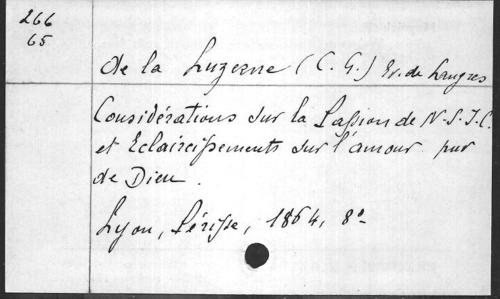 266
65
de la Luzerne (C. G.) Ev. de Langres
Considérations sur la Passion de N.-S. J. C.
et Eclaircissements sur l'amour pur
de Dieu.
Lyon, Périsse, 1864, 8º